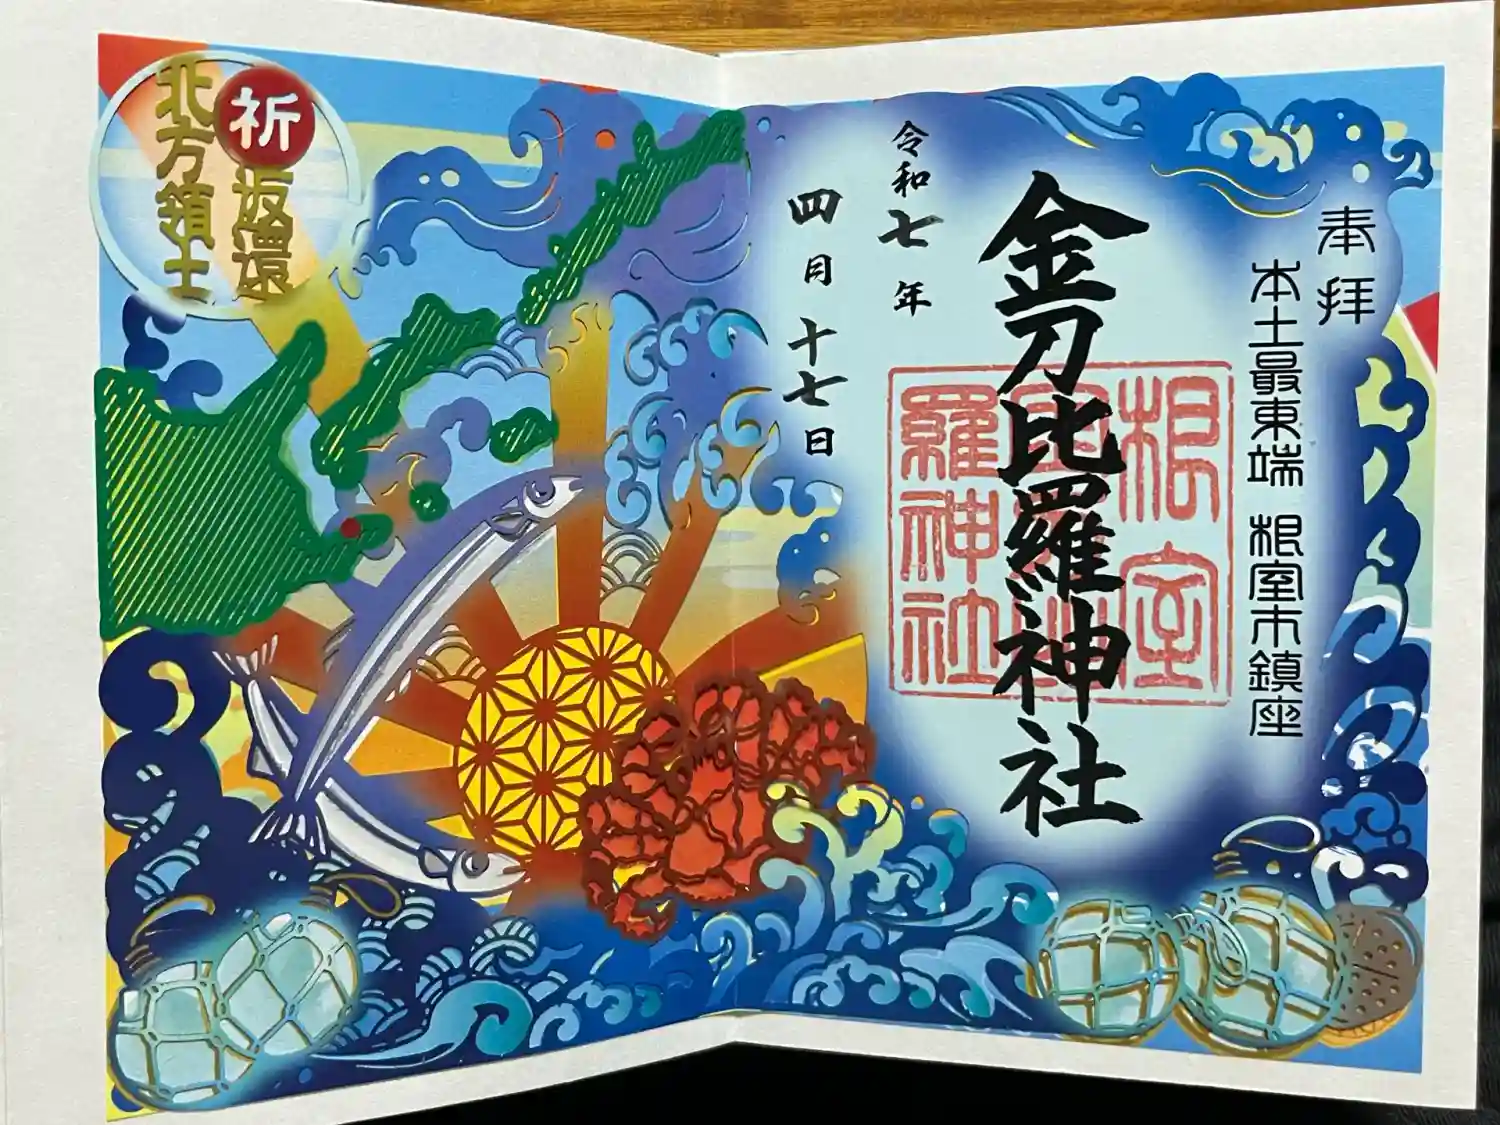 奉拝
本土最東端 根室市鎮座
金刀比羅神社
根室
金刀比
羅神社
令和七年
四月十七日
祈
返還
北方領土